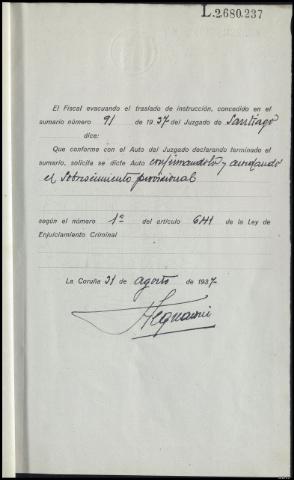 L.2680.237
El Fiscal evacuando el traslado de instrucción, concedido en el
sumario número 91 de 1937 del Juzgado de Santiago
dice:
Que conforme con el Auto del Juzgado declarando terminado el
sumario, solicita se dicte Auto confirmandolo y acordando
el Sobreseimiento provisional
según el número 1º del artículo 641 de la Ley de
Enjuiciamiento Criminal
La Coruña 31 de agosto de 1937-